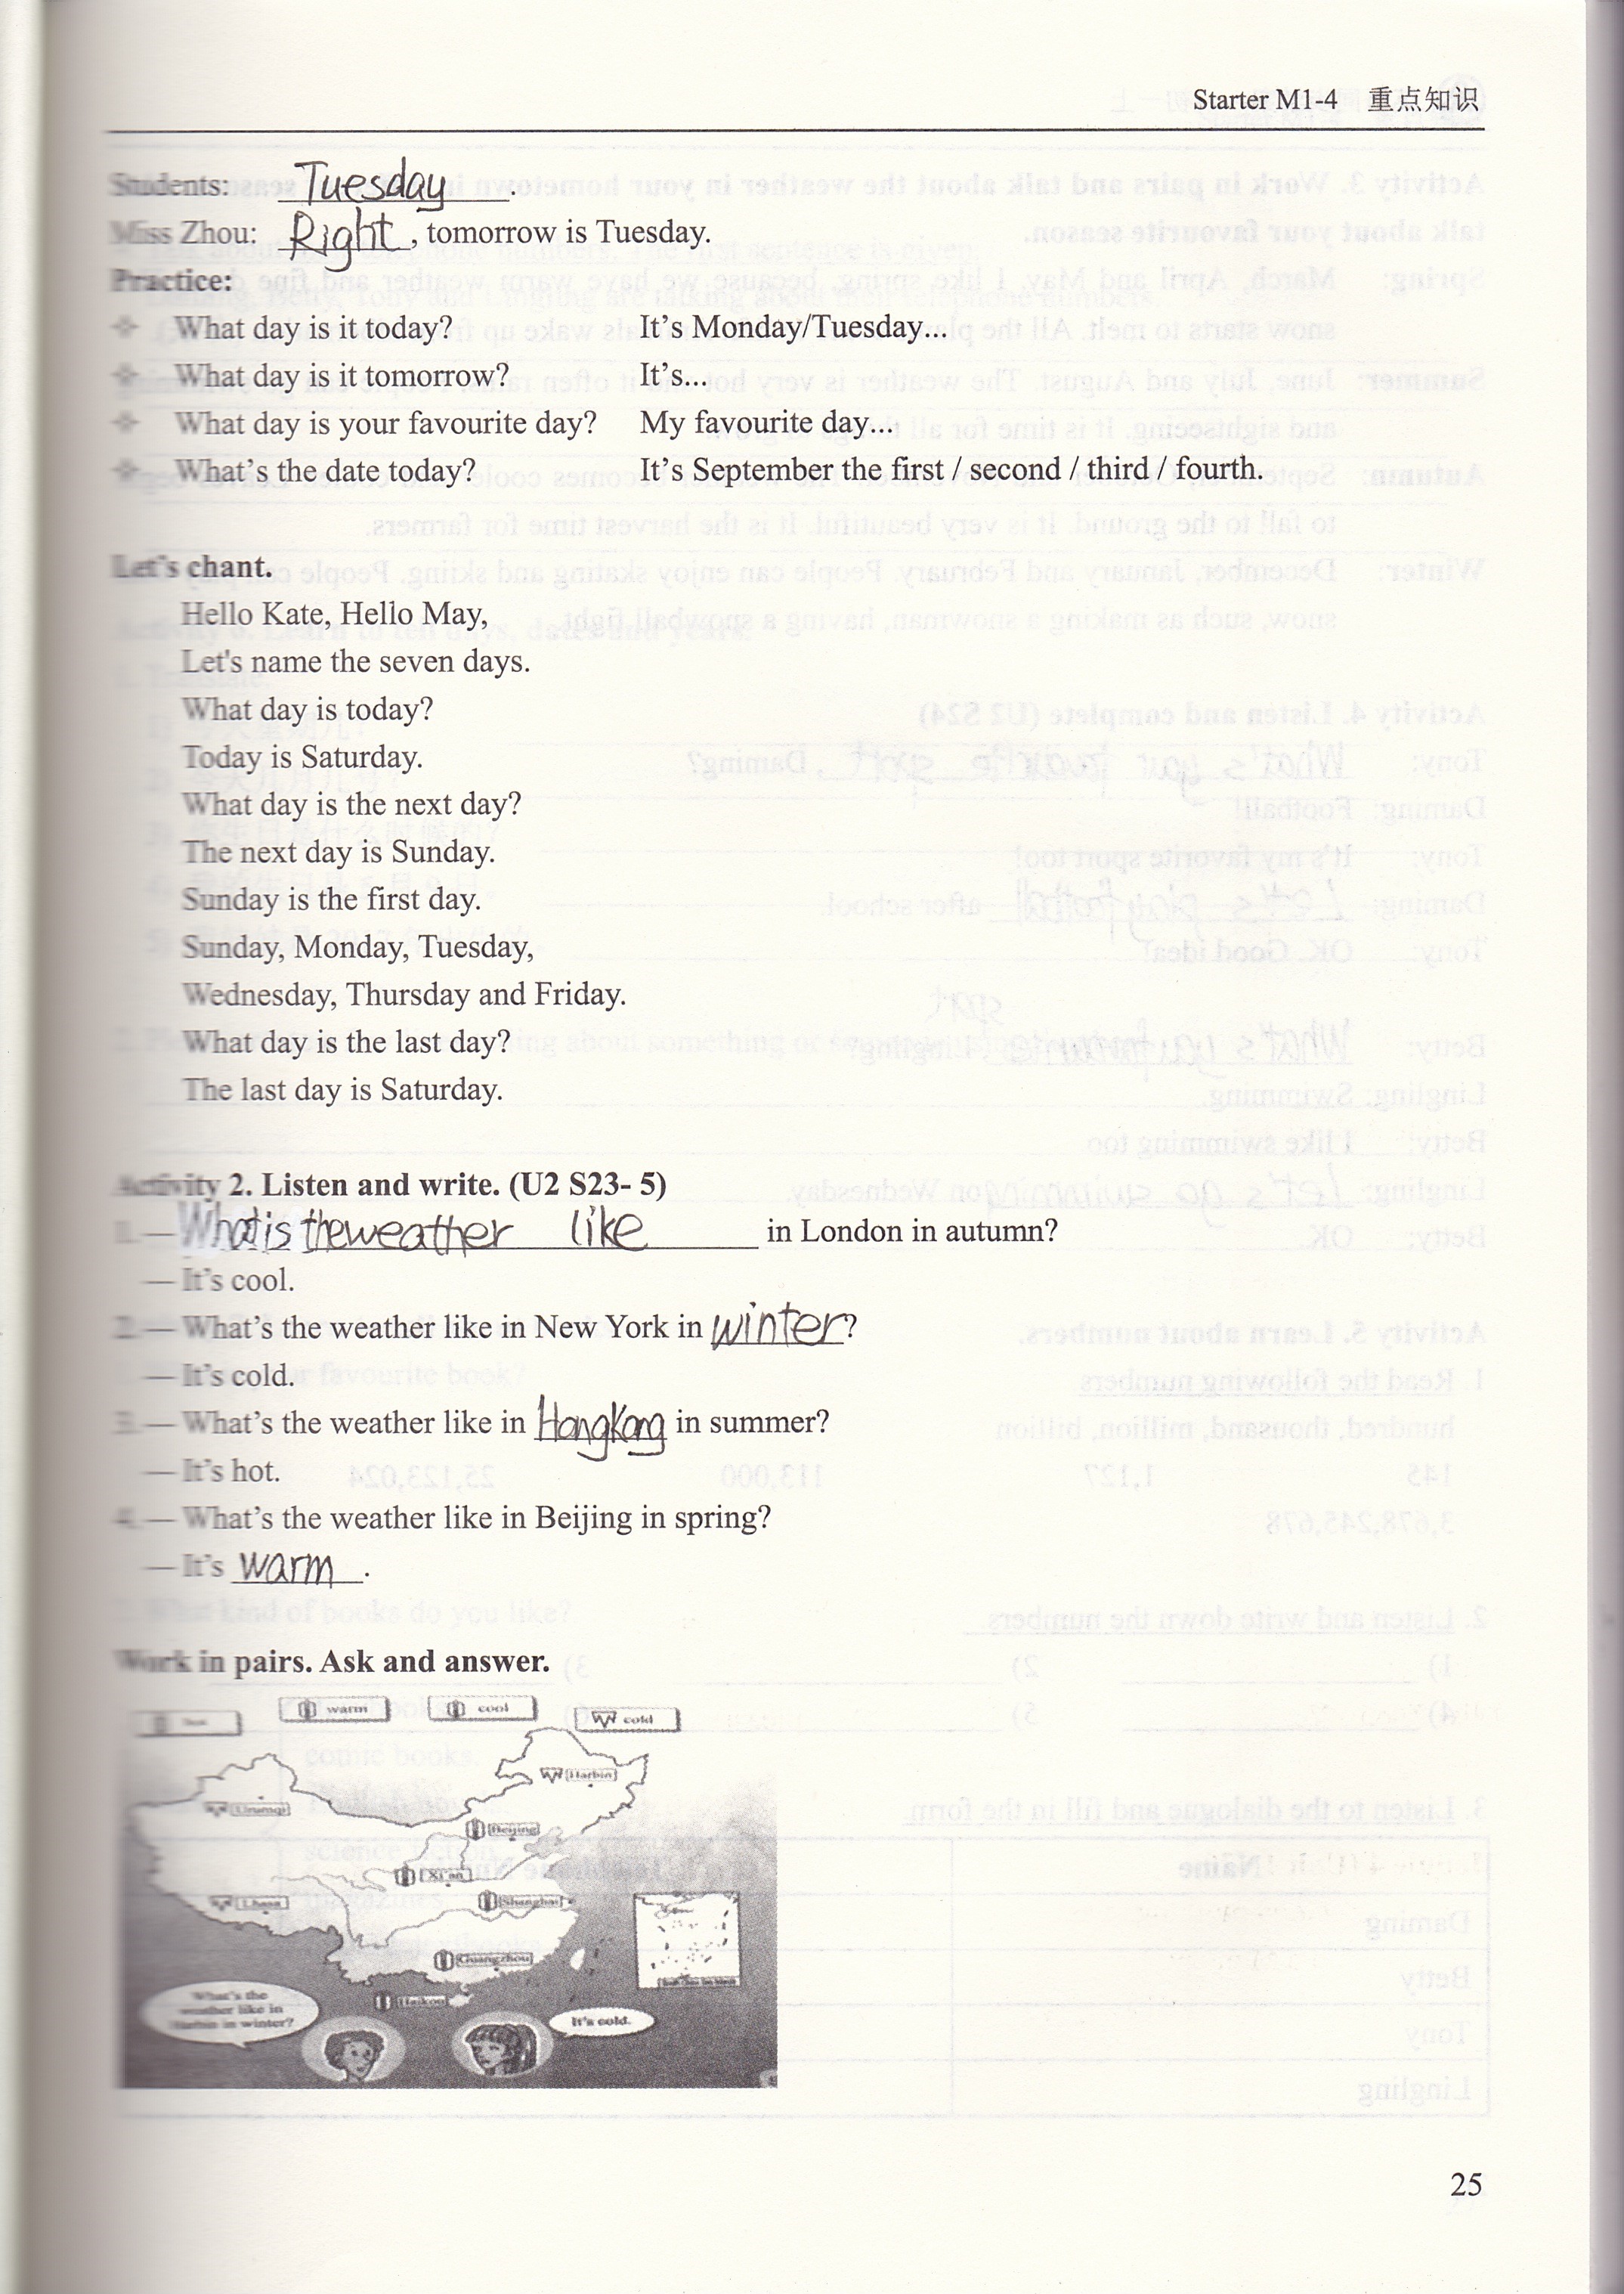 Starter M1-4 重点知识
Students: Tuesday.
Miss Zhou: Right, tomorrow is Tuesday.
Practice:
What day is it today? It's Monday/Tuesday...
What day is it tomorrow? It's...
What day is your favourite day? My favourite day...
What's the date today? It's September the first / second / third / fourth.
Let's chant.
Hello Kate, Hello May,
Let's name the seven days.
What day is today?
Today is Saturday.
What day is the next day?
The next day is Sunday.
Sunday is the first day.
Sunday, Monday, Tuesday,
Wednesday, Thursday and Friday.
What day is the last day?
The last day is Saturday.
Activity 2. Listen and write. (U2 S23- 5)
1. — What is the weather like in London in autumn?
— It's cool.
2. — What's the weather like in New York in winter?
— It's cold.
3. — What's the weather like in HongKong in summer?
— It's hot.
4. — What's the weather like in Beijing in spring?
— It's warm.
Work in pairs. Ask and answer.
warm cool cold
Harbin
Urumqi
Beijing
Xi'an
Lhasa Shanghai
Guangzhou
Haikou
What's the weather like in Harbin in winter?
It's cold.
25